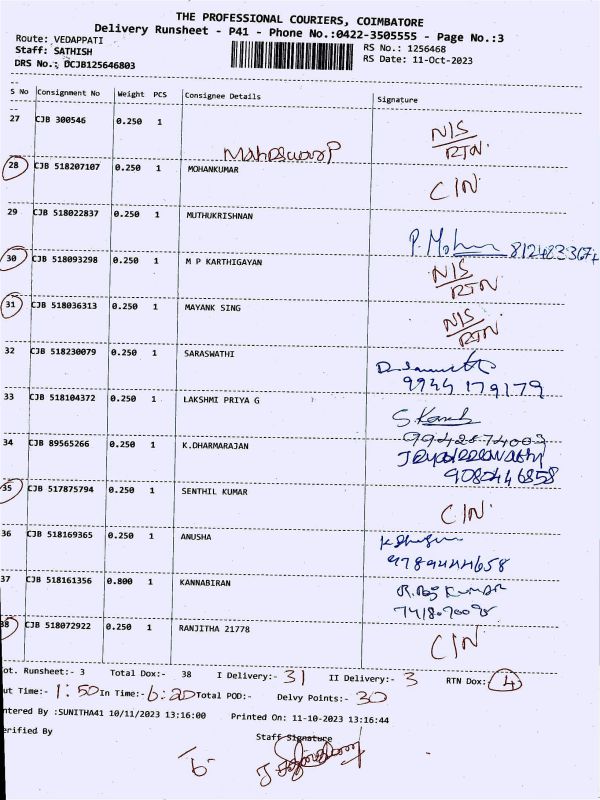 THE PROFESSIONAL COURIERS, COIMBATORE
Delivery Runsheet - P41 - Phone No.:0422-3505555 - Page No.:3
Route: VEDAPPATI
RS No.: 1256468
Staff: SATHISH
RS Date: 11-Oct-2023
DRS No.: DCJB125646803
S No Consignment No Weight PCS Consignee Details Signature
27 CJB 300546 0.250 1 N/S RTN
28 CJB 518207107 0.250 1 MOHANKUMAR CIN
29 CJB 518022837 0.250 1 MUTHUKRISHNAN
P. Mohan
30 CJB 518093298 0.250 1 M P KARTHIGAYAN N/S RTN
31 CJB 518036313 0.250 1 MAYANK SING N/S RTN
32 CJB 518230079 0.250 1 SARASWATHI
9944 179179
33 CJB 518104372 0.250 1 LAKSHMI PRIYA G
34 CJB 89565266 0.250 1 K.DHARMARAJAN
9080446858
35 CJB 517875794 0.250 1 SENTHIL KUMAR CIN
36 CJB 518169365 0.250 1 ANUSHA
9789444658
37 CJB 518161356 0.800 1 KANNABIRAN R. Raj Kumar
38 CJB 518072922 0.250 1 RANJITHA 21778 CIN
ot. Runsheet:- 3 Total Dox:- 38 I Delivery:- 31 II Delivery:- 3 RTN Dox: 4
ut Time:- 1:50 In Time:- 6:20 Total POD:- Delvy Points:- 30
ntered By :SUNITHA41 10/11/2023 13:16:00 Printed On: 11-10-2023 13:16:44
erified By Staff Signature